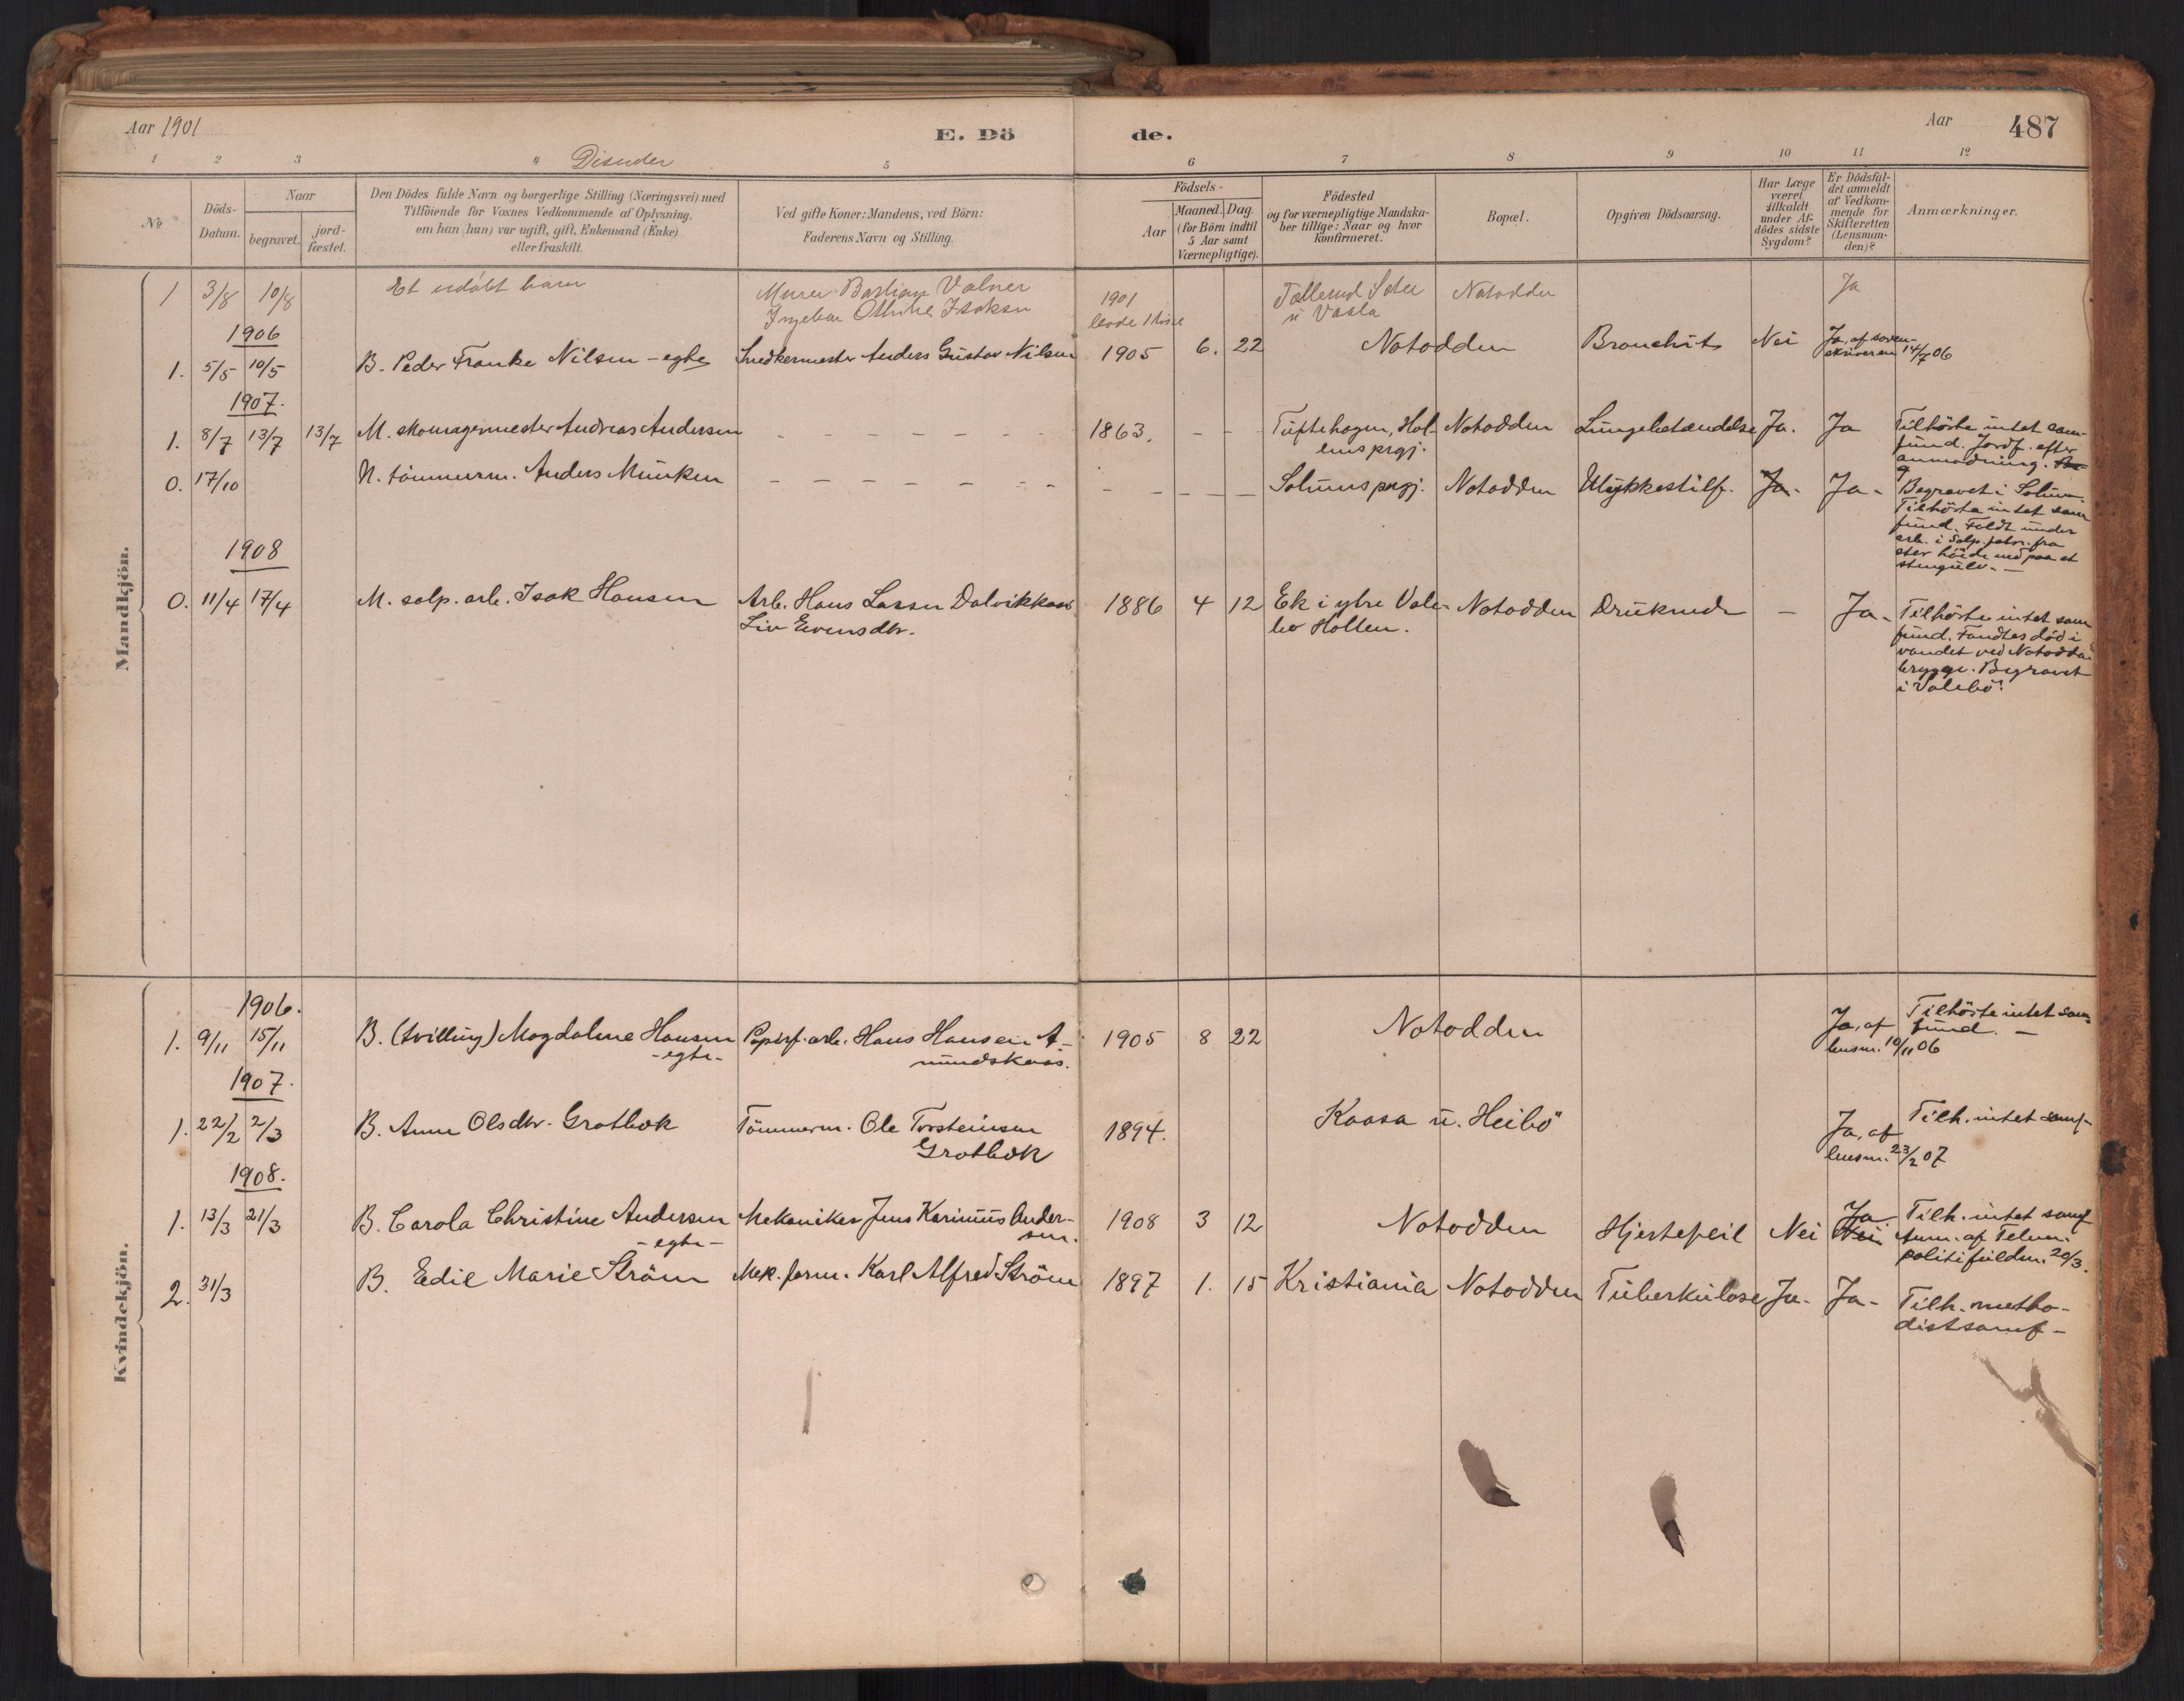 Aar 1901
E. Dö
de.
Aar
487
1 2 3 4 Disender 5 6 7 8 9 10 11 12
No
Döds-
Datum.
Naar
begravet.
jord-
fæstet.
Den Dödes fulde Navn og borgerlige Stilling (Næringsvei) med
Tilföiende for Voxnes Vedkommende af Oplysning.
om han (hun) var ugift, gift, Enkemand (Enke)
eller fraskilt.
Ved gifte Koner: Mandens, ved Börn:
Faderens Navn og Stilling.
Födsels-
Aar
Maaned. Dag.
(for Börn indtil
5 Aar samt
Værnepligtige).
Födested
og for værnepligtige Mandska-
ber tillige: Naar og hvor
konfirmeret.
Bopæl.
Opgiven Dödsaarsag.
Har Læge
været
tilkaldt
under Af-
dödes sidste
Sygdom?
Er Dödsfal-
det anmeldt
af Vedkom-
mende for
Skifteretten
(Lensman-
den)?
Anmærkninger.
Mandkjön.
1 3/8 10/8 Et udöbt barn Murer Bastian Valner 1901 Notodden Ja
Ingebor Othilie Isaksen
u Vasla
1906
1. 5/5 10/5 B. Peder Franke Nilsen - egte Snedkermester Anders Gustav Nilsen 1905 6. 22 Notodden Bronchit Nei Ja, af soren-
skriveren 14/7 06
1907.
1. 8/7 13/7 13/7 M. skomagermester Andreas Andersen - - - - - - - 1863. - - Tuftehagen, Hol- Notodden Lungebetændelse Ja. Ja Tilhörte intet sam-
lens prgj. fund. Jordf. efter
anmodning.
0. 17/10 N. tömmerm. Anders Munken - - - - - - - - - - - Solums prgj. Notodden Ulykkestilf. Ja. Ja - Begravet i Solum.
Tilhörte intet sam
fund. Faldt under
arb. i Salp. fabr. fra
stor höide ned paa et
stengulv. -
1908
0. 11/4 17/4 M. salp. arb. Isak Hansen Arb. Hans Lassen Dalvikkaas 1886 4 12 Ek i ytre Vale- Notodden Druknede - Ja - Tilhörte intet sam
Liv Evensdtr. bö Hollen. fund. Fandtes död i
vandet ved Notodden
brygge. Begravet
i Valebö.
Kvindekjön.
1906.
1. 9/11 15/11 B. (tvilling) Magdalene Hansen Papirf. arb. Hans Hansen A- 1905 8 22 Notodden Ja, af Tilhörte intet sam
- egte - mundskaas. lensm. 10/11 06 fund. -
1907.
1. 22/2 2/3 B. Anne Olsdtr. Grotbæk Tömmerm. Ole Torsteinsen 1894. Kaasa u. Heibö Ja, af Tilh. intet samf-
Grotbæk lensm. 23/2 07
1908.
1. 13/3 21/3 B. Carola Christine Andersen Mekaniker Jens Karinius Ander- 1908 3 12 Notodden Hjertefeil Nei Ja Nei Tilh. intet samf
- egte - sen. Anm. af Telem.
politifuldm. 20/3.
2. 31/3 B. Edil Marie Ström Mek. form. Karl Alfred Ström 1897 1. 15 Kristiania Notodden Tuberkulose Ja - Ja - Tilh. metho-
distsamf -